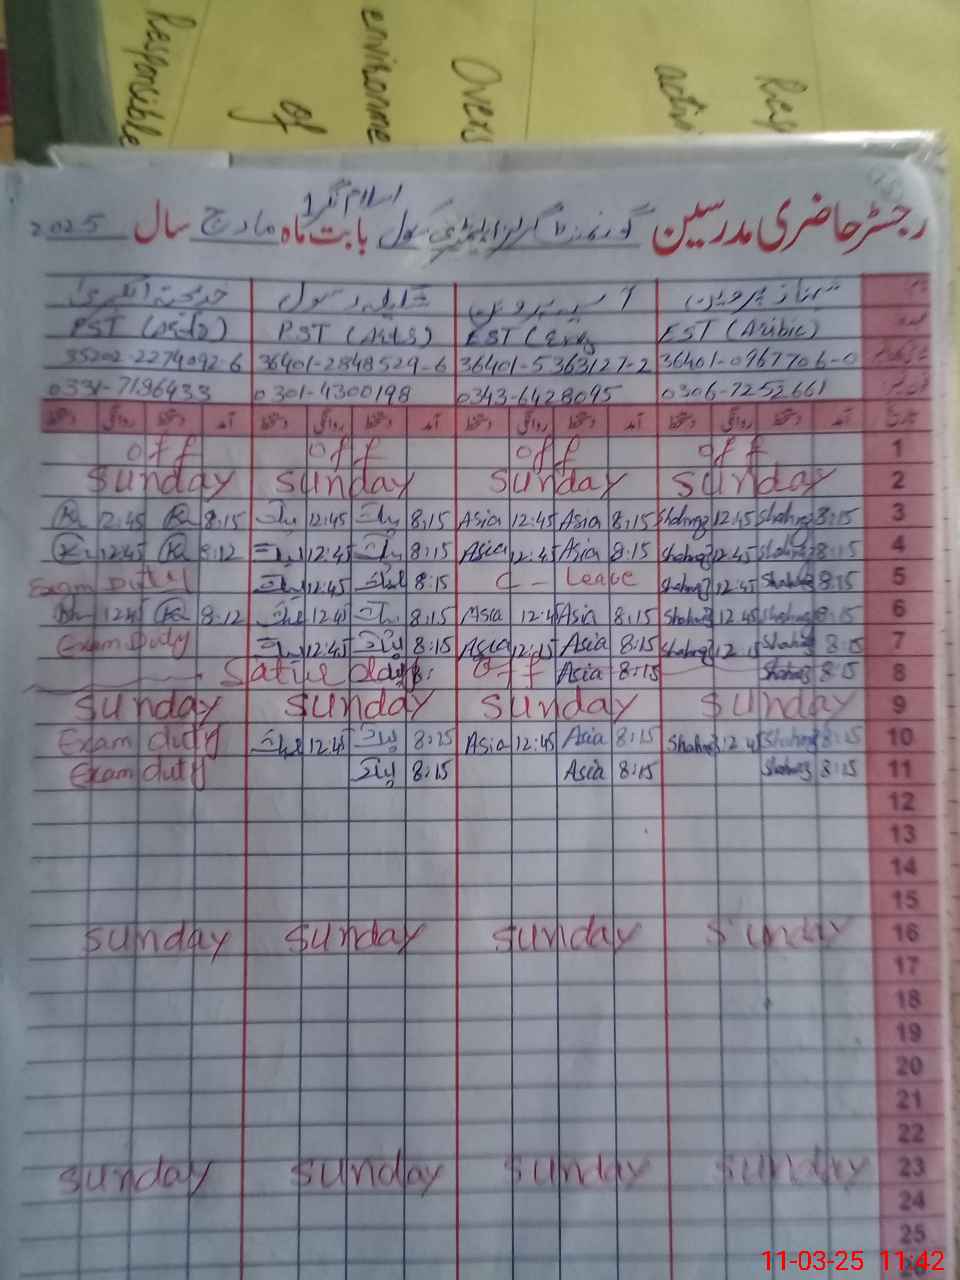 Responsible
environme
of
Overs
activi
Resp
اسلام نگر
رجسٹر حاضری مدرسین گورنمنٹ گرلز ایلیمنٹری سکول بابت ماہ مارچ سال 2025
شہناز پروین آسیہ پروین
EST (Arabic) EST (Eng) PST (Arts) PST (Arts)
36401-0967706-0 36401-5363127-2 36401-2848529-6 35202-2274092-6
0306-7252661 0343-6428095 0301-4300198 0331-7196433
تاریخ آمد دستخط روانگی دستخط آمد دستخط روانگی دستخط آمد دستخط روانگی دستخط آمد دستخط روانگی دستخط
off off off off 1
Sunday Sunday Sunday Sunday 2
12:45 8:15 12:45 8:15 Asia 12:45 Asia 8:15 Shahnaz 12:45 Shahnaz 8:15 3
12:45 8:12 12:45 8:15 Asia 12:45 Asia 8:15 Shahnaz 12:45 Shahnaz 8:15 4
Exam Duty 12:45 8:15 C - Leave Shahnaz 12:45 Shahnaz 8:15 5
12:45 8:12 12:45 8:15 Asia 12:45 Asia 8:15 Shahnaz 12:45 Shahnaz 8:15 6
Exam Duty 12:45 8:15 Asia 12:45 Asia 8:15 Shahnaz 12:15 Shahnaz 8:15 7
off Asia 8:15 Shahnaz 8:15 8
Sunday Sunday Sunday Sunday 9
Exam duty 12:45 8:15 Asia 12:45 Asia 8:15 Shahnaz 12:45 Shahnaz 8:15 10
Exam duty 8:15 Asia 8:15 Shahnaz 8:15 11
12
13
14
15
Sunday Sunday Sunday Sunday 16
17
18
19
20
21
22
Sunday Sunday Sunday Sunday 23
24
25
11-03-25 11:42